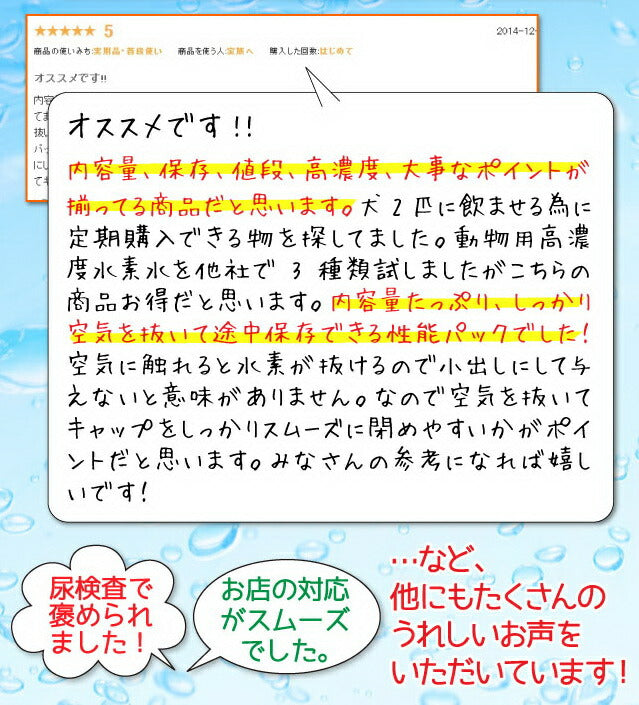 ★★★★★ 5
2014-12-
商品の使いみち:実用品・普段使い 商品を使う人:家族へ 購入した回数:はじめて
オススメです!!
内容
てま
抜い
バッ
にし
てキ
オススメです!!
内容量、保存、値段、高濃度、大事なポイントが
揃ってる商品だと思います。犬2匹に飲ませる為に
定期購入できる物を探してました。動物用高濃
度水素水を他社で3種類試しましたがこちらの
商品お得だと思います。内容量たっぷり、しっかり
空気を抜いて途中保存できる性能パックでした!
空気に触れると水素が抜けるので小出しにして与
えないと意味がありません。なので空気を抜いて
キャップをしっかりスムーズに閉めやすいかがポイ
ントだと思います。みなさんの参考になれば嬉し
いです!
尿検査で
褒められ
ました!
お店の対応
がスムーズ
でした。
…など、
他にもたくさんの
うれしいお声を
いただいています!